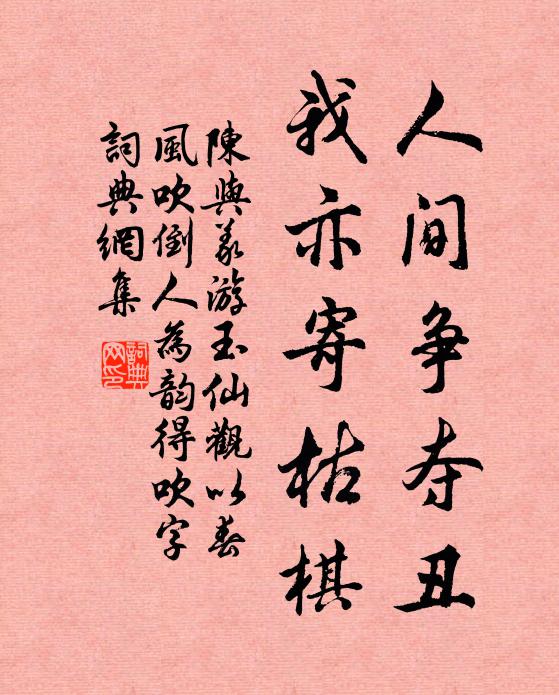 人间争夺丑
我亦寄枯棋
陳與義游玉仙觀以春
風吹倒人為韵得吹字
詞典網集
詞典
网印